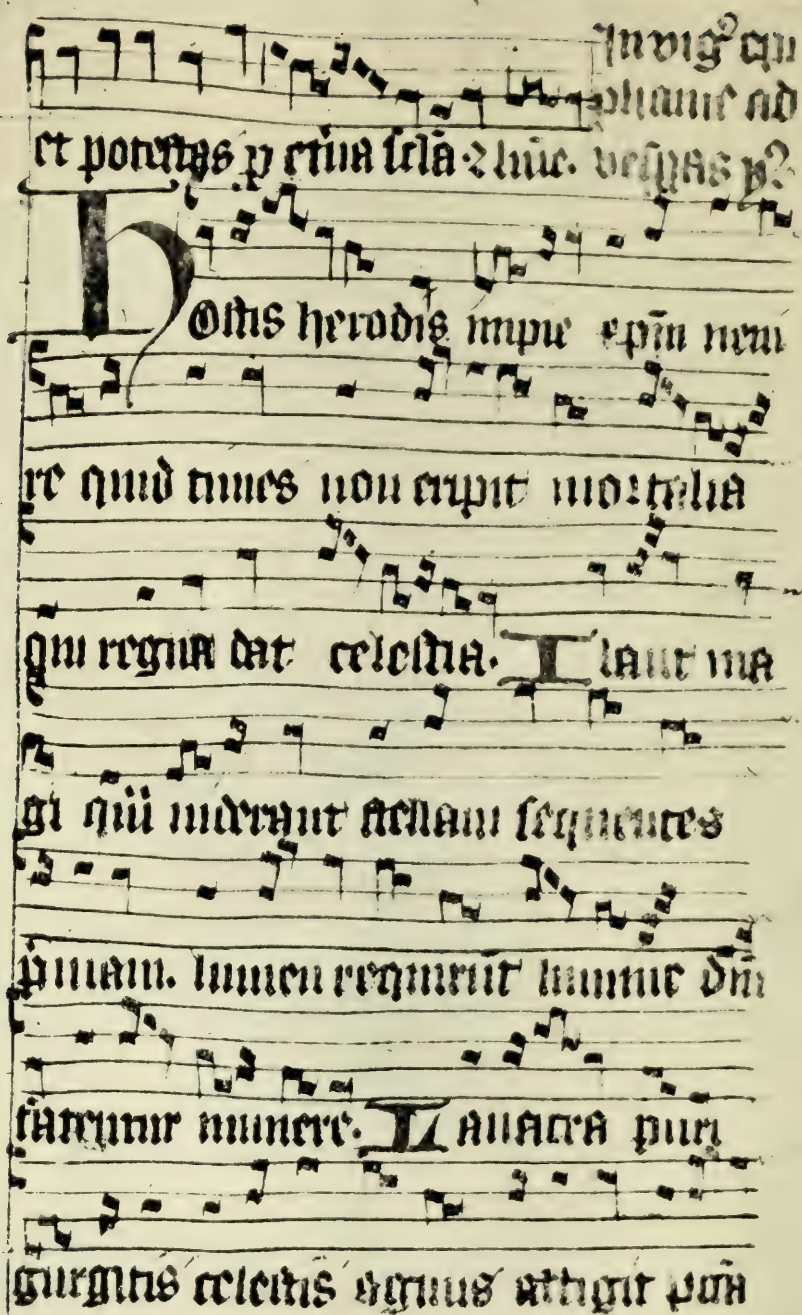 In vigꝰ epi
phanie ad
et potestas ꝑ etna secla ⁊ huīc. vesꝑas yꝰ
Hostis herodis impie xpm̄ veni
re quid times non eripit mortalia
qui regna dat celestia. I baut ma
gi qua uiderant stellam sequentes
p̄uiam. lumen requirūt lumine dm̄
fatentur munere. L auacra puri
gurgitis celestis agnus attigit pctā